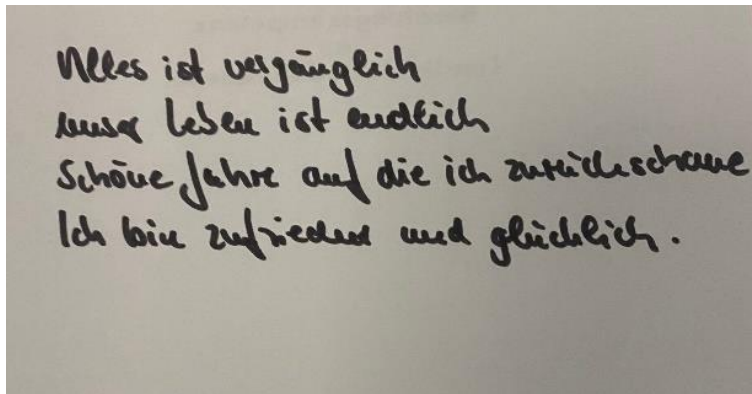 Alles ist vergänglich
unser Leben ist endlich
Schöne Jahre auf die ich zurückschaue
Ich bin zufrieden und glücklich.